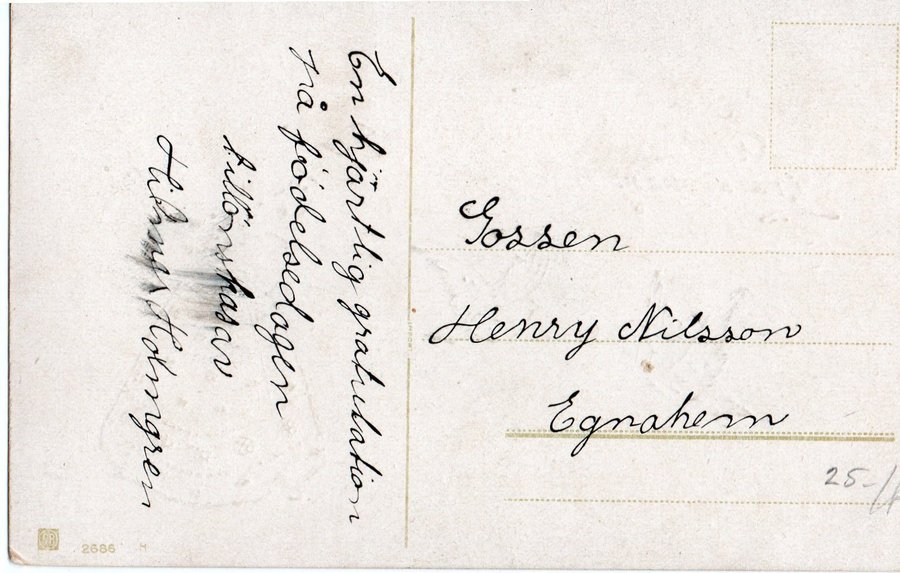 En hjärtlig gratulation
på födelsedagen
tillönskas av
Holmgren
Gossen
Henry Nilsson
Egnahem
25-/
2686